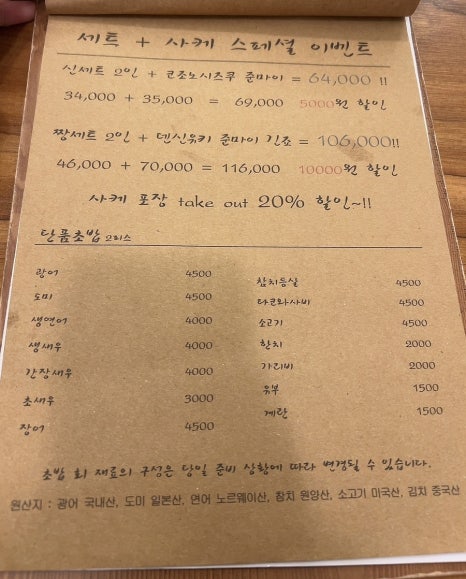 세트 + 사케 스페셜 이벤트
신세트 2인 + 코조노시즈쿠 준마이 = 64,000 !!
34,000 + 35,000 = 69,000 5000원 할인
짱세트 2인 + 덴신유키 준마이 긴죠 = 106,000!!
46,000 + 70,000 = 116,000 10000원 할인
사케 포장 take out 20% 할인~!!
단품초밥 2피스
광어 4500
도미 4500
생연어 4000
생새우 4000
간장새우 4000
초새우 3000
장어 4500
참치등살 4500
타코와사비 4500
소고기 4500
한치 2000
가리비 2000
유부 1500
계란 1500
초밥 회 재료의 구성은 당일 준비 상황에 따라 변경될 수 있습니다.
원산지 : 광어 국내산, 도미 일본산, 연어 노르웨이산, 참치 원양산, 소고기 미국산, 김치 중국산